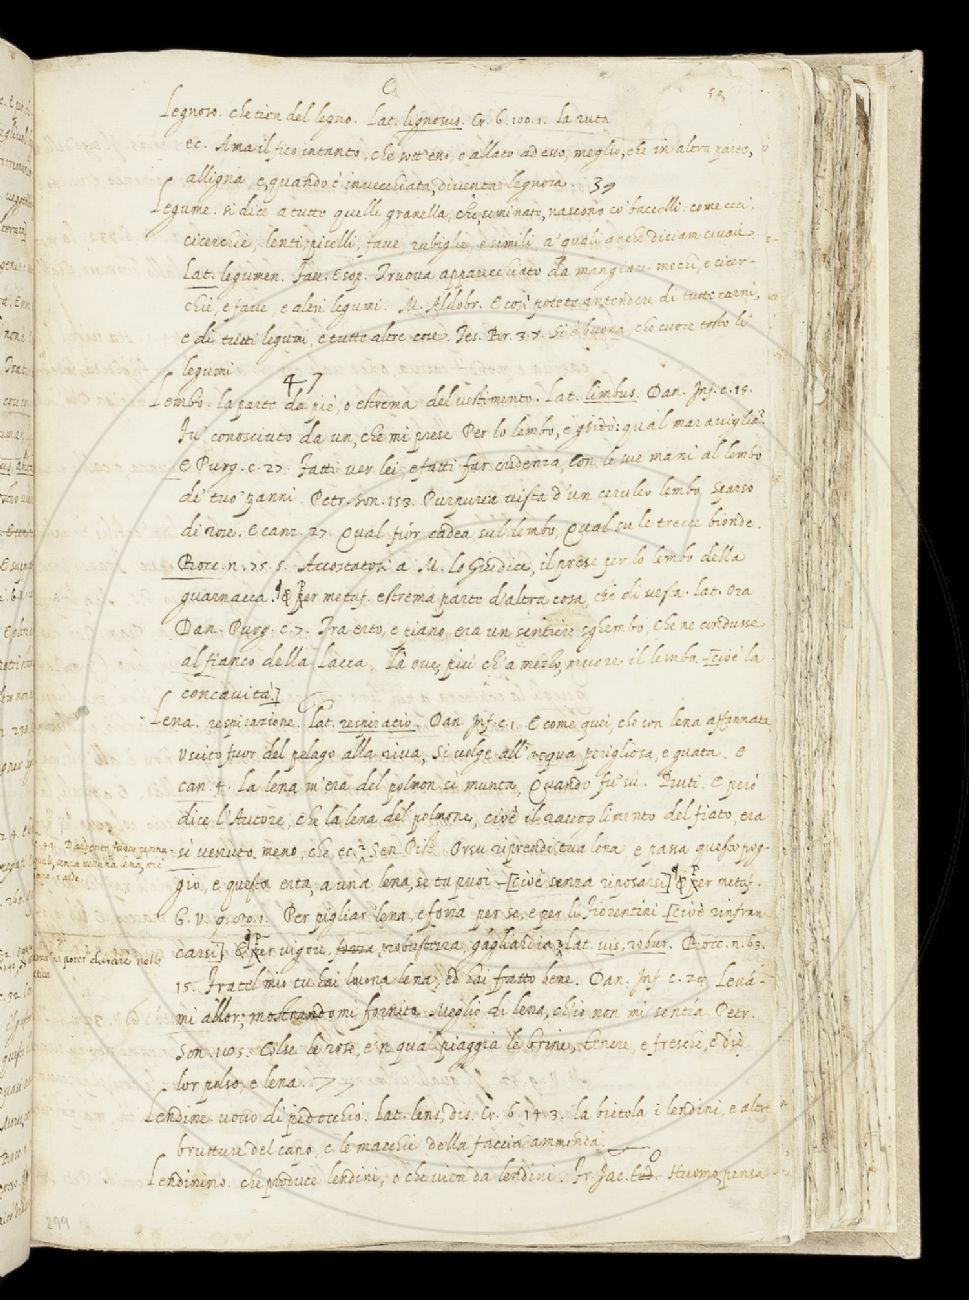 Legnoso. che tien del legno. Lat. lignosus. Cr. 6. 100. 1. La ruta
ec. Ama il fico intanto, che sott'esso, e allato ad esso, meglio, che in altra parte,
alligna, e, quando è invecchiata, diventa legnosa.
Legume. si dice a tutte quelle granella, che, seminate, nascono co' baccelli: come ceci,
cicerchie, lenti, piselli, fave, rubiglie, e simili, a' quali anche diciam civaie.
Lat. legumen. Fav. Esop. Truova apparecchiato da mangiare mochi, e cicer-
chie, e fave, e altri legumi. M. Aldobr. E così potete intendere di tutte carni,
e di tutti legumi, e tutte altre cose. Tes. Br. 3. 7. Si è buona, che cuoce tosto li
legumi
47
Lembo. la parte da piè, o estrema del vestimento. Lat. limbus. Dan. Inf. c. 15.
Fu' conosciuto da un, che mi prese Per lo lembo, e gridò: qual maraviglia?
E Purg. c. 27. Fatti ver lei, e fatti far credenza, Con le tue mani al lembo
de' tuo' panni. Petr. Son. 153. Purpurea vesta d'un ceruleo lembo Sparso
di rose. E canz. 27. Qual fior cadea sul lembo, Qual su le trecce bionde.
Bocc. n. 75. 5. Accostatosi a M. lo Giudice, il prese per lo lembo della
guarnacca. ¶ Per metaf. estrema parte d'altra cosa, che di vesta. lat. ora
Dan. Purg. c. 7. Tra erto, e piano, era un sentiero sghembo, che ne condusse
al fianco della Lacca, Là ove, più ch'a mezzo, muore il lembo. [cioè la
concavità]
Lena. respirazione. Lat. respiratio. Dan. Inf. c. 1. E come quei, che con lena affannata
Uscito fuor del pelago alla riva, Si volge all'acqua perigliosa, e guata. E
can. 4. La lena m'era del polmon sì munta, Quando fu' sù. Buti. E però
dice l'Autore, che la lena del polmone, cioè il raccoglimento del fiato, era
sì venuto meno, che, ec. Sen. Pist. Orsu riprendi tua lena e passa questo pog-
gio, e questa erta, a una lena, se tu puoi [cioè senza riposarsi] ¶ Per metaf.
G. V. 9. 1. Per pigliar lena, e forza per se, e per li Fiorentini [cioè rinfran
carsi] ¶ Per vigore, forza, robustezza, gagliardia, Lat. vis, robur. Bocc. n. 63.
15. Fratel mio tu hai buona lena, ed hai fatto bene. Dan. Inf. c. 24 Leva-
mi allor, mostrandomi fornito Meglio di lena, ch'io non mi sentia. Petr.
Son. Colse le rose, e 'n qual piaggia le brine, tenere, e fresche, e diè
lor polso, e lena.
Lendine. uovo di pidocchio. Lat. lens, dis. Cr. 6. 14. 3. la bietola i lendini, e altre
brutture del capo, e le macchie della faccia ammenda.
Lendinino. che produce lendini, o che vien da lendini. Fr. Jac. tod. Huomo, pensa
299